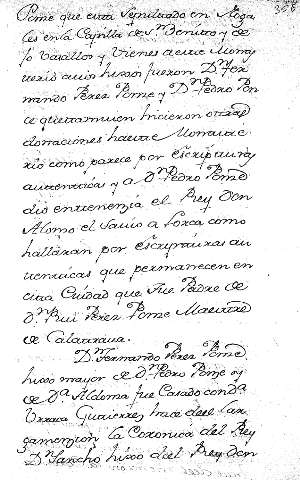 Pome que esta sepultado en Noga
les en la Capilla de Sn. Benitto y de
jo Vasallos y Vienes a este Mona
sterio cuios hixos fueron Dn. Fer
nando Perez Pome y Dn. Pedro Pon
ce que tamuien hicieron otras
donaciones haeste Monaste
rio como parece por escripturas
autenticas y a Dn. Pedro Pome
dio en tenenzia el Rey Don
Alonso el Sauio a Lorca como
hallaran por escripturas au
tenticas que permanecen en
esta Ciudad que fue Padre de
Dn. Rui Perez Pome Maestre
de Calatraua.
Dn. Fernando Perez Pome
hixo mayor de Dn. Pedro Pome y
de Da. Aldonsa fue Casado con Da.
Vrraca Gutierrez hace dese lar
ga menzion la Coronica del Rey
Dn. Sancho hixo del Rey Don